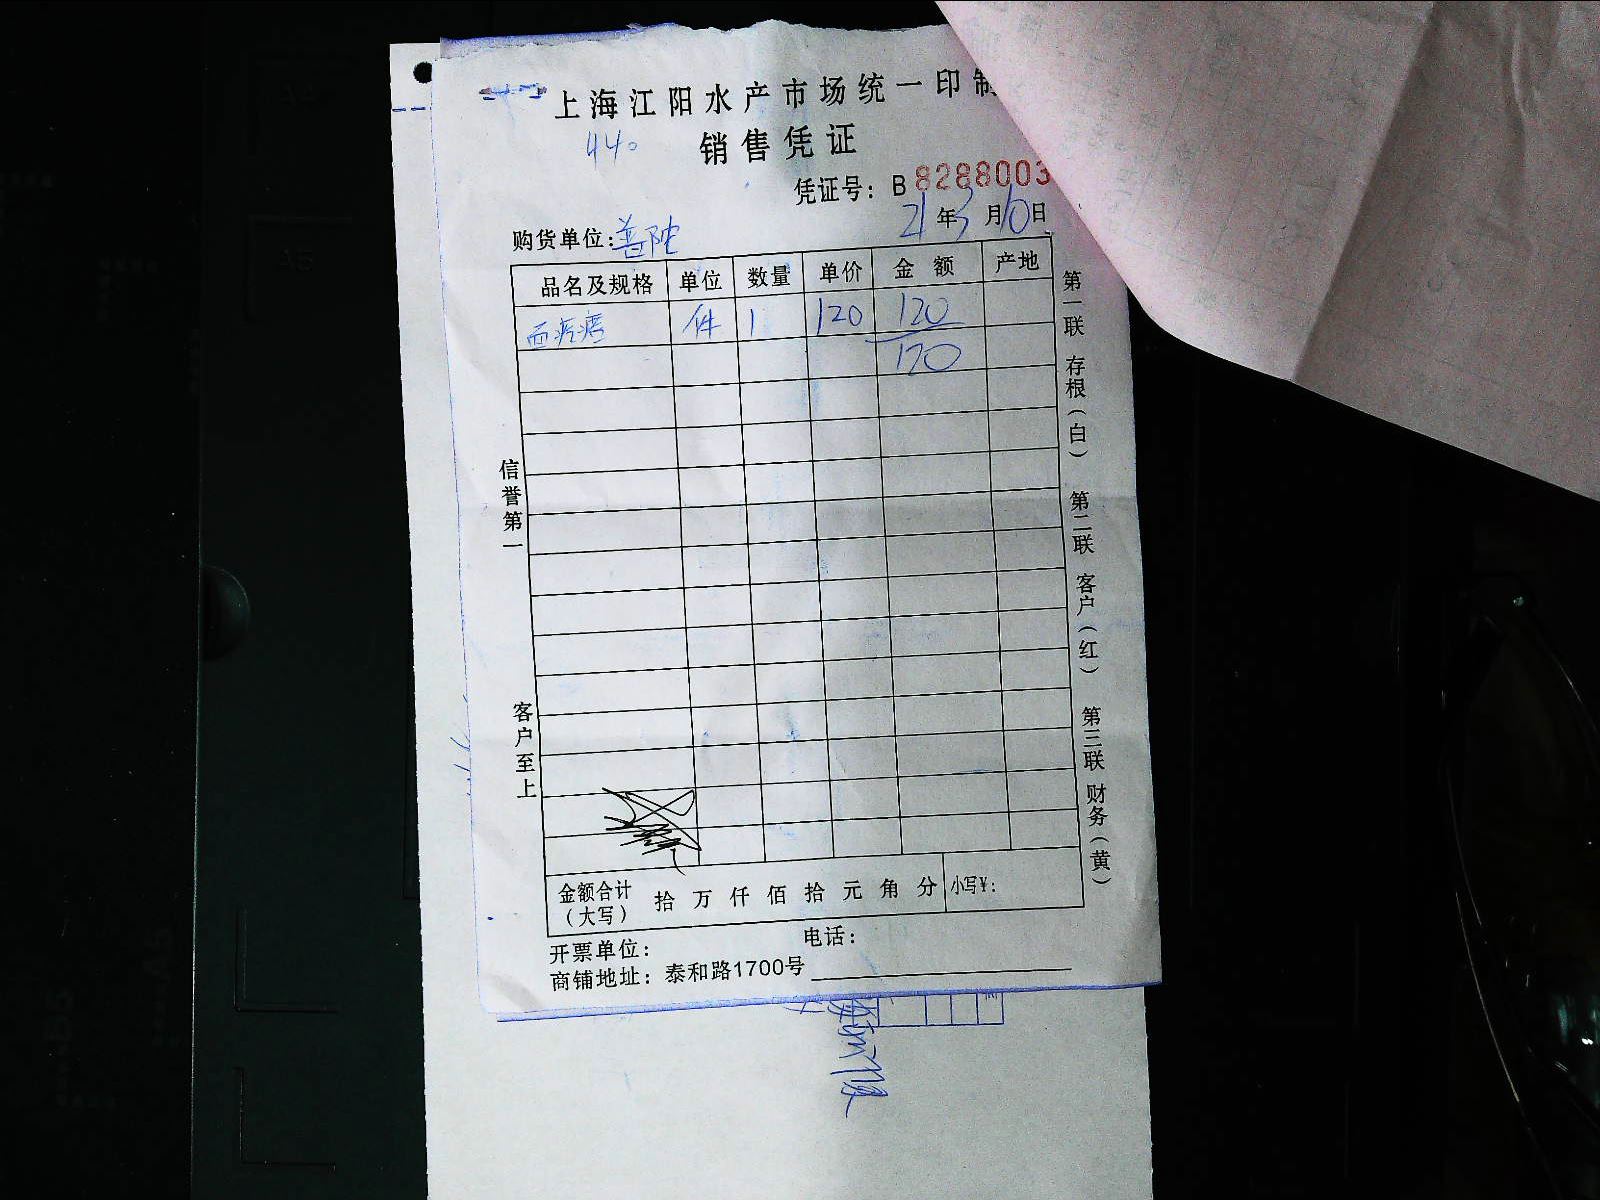 上海江阳水产市场统一印制
440
销售凭证
凭证号：B 8288003
21年3月10日
购货单位：普陀
品名及规格 单位 数量 单价 金额 产地
面疙瘩 件 1 120 120
170
信誉第一
客户至上
第一联 存根（白） 第二联 客户（红） 第三联 财务（黄）
金额合计（大写） 拾 万 仟 佰 拾 元 角 分 小写¥：
开票单位： 电话：
商铺地址：泰和路1700号